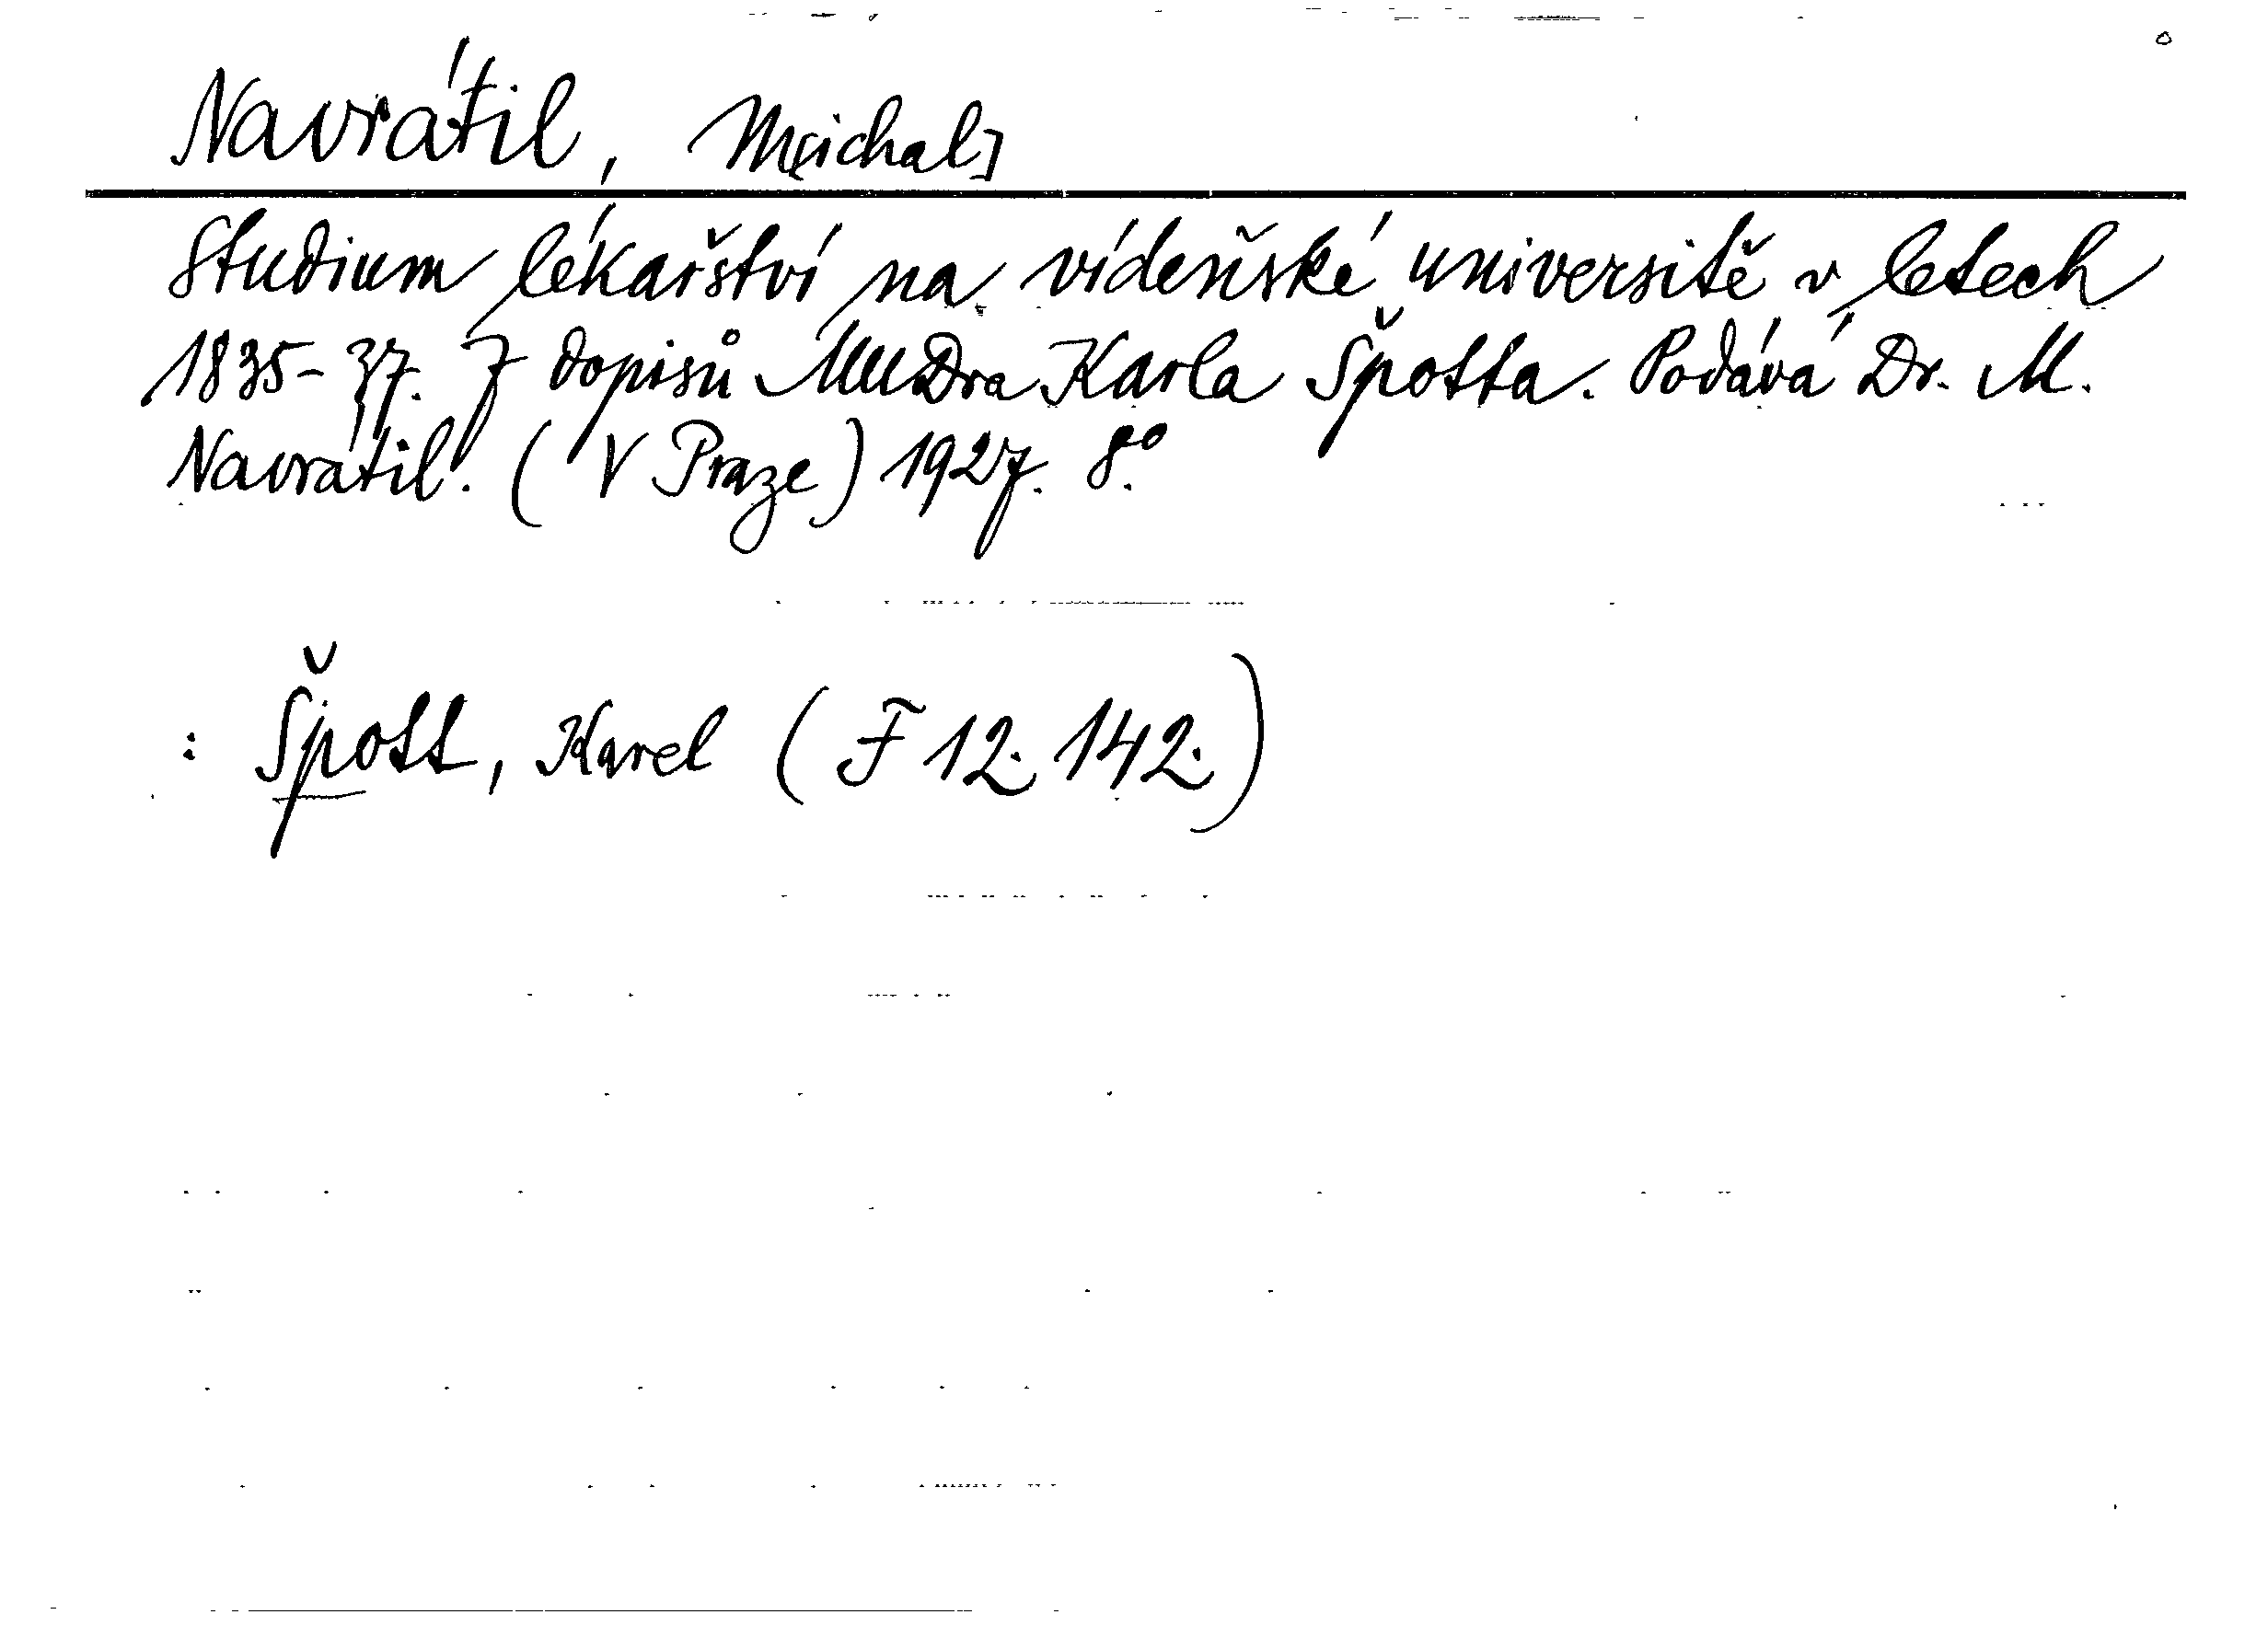 Navrátil, M[ichal]
Studium lékařství na vídeňské universitě v letech
1835-37. Z dopisů MUDra Karla Špotta. Podává Dr. M.
Navrátil. (V Praze) 1927. 8°.
: Špott, Karel (F 12. 142.)